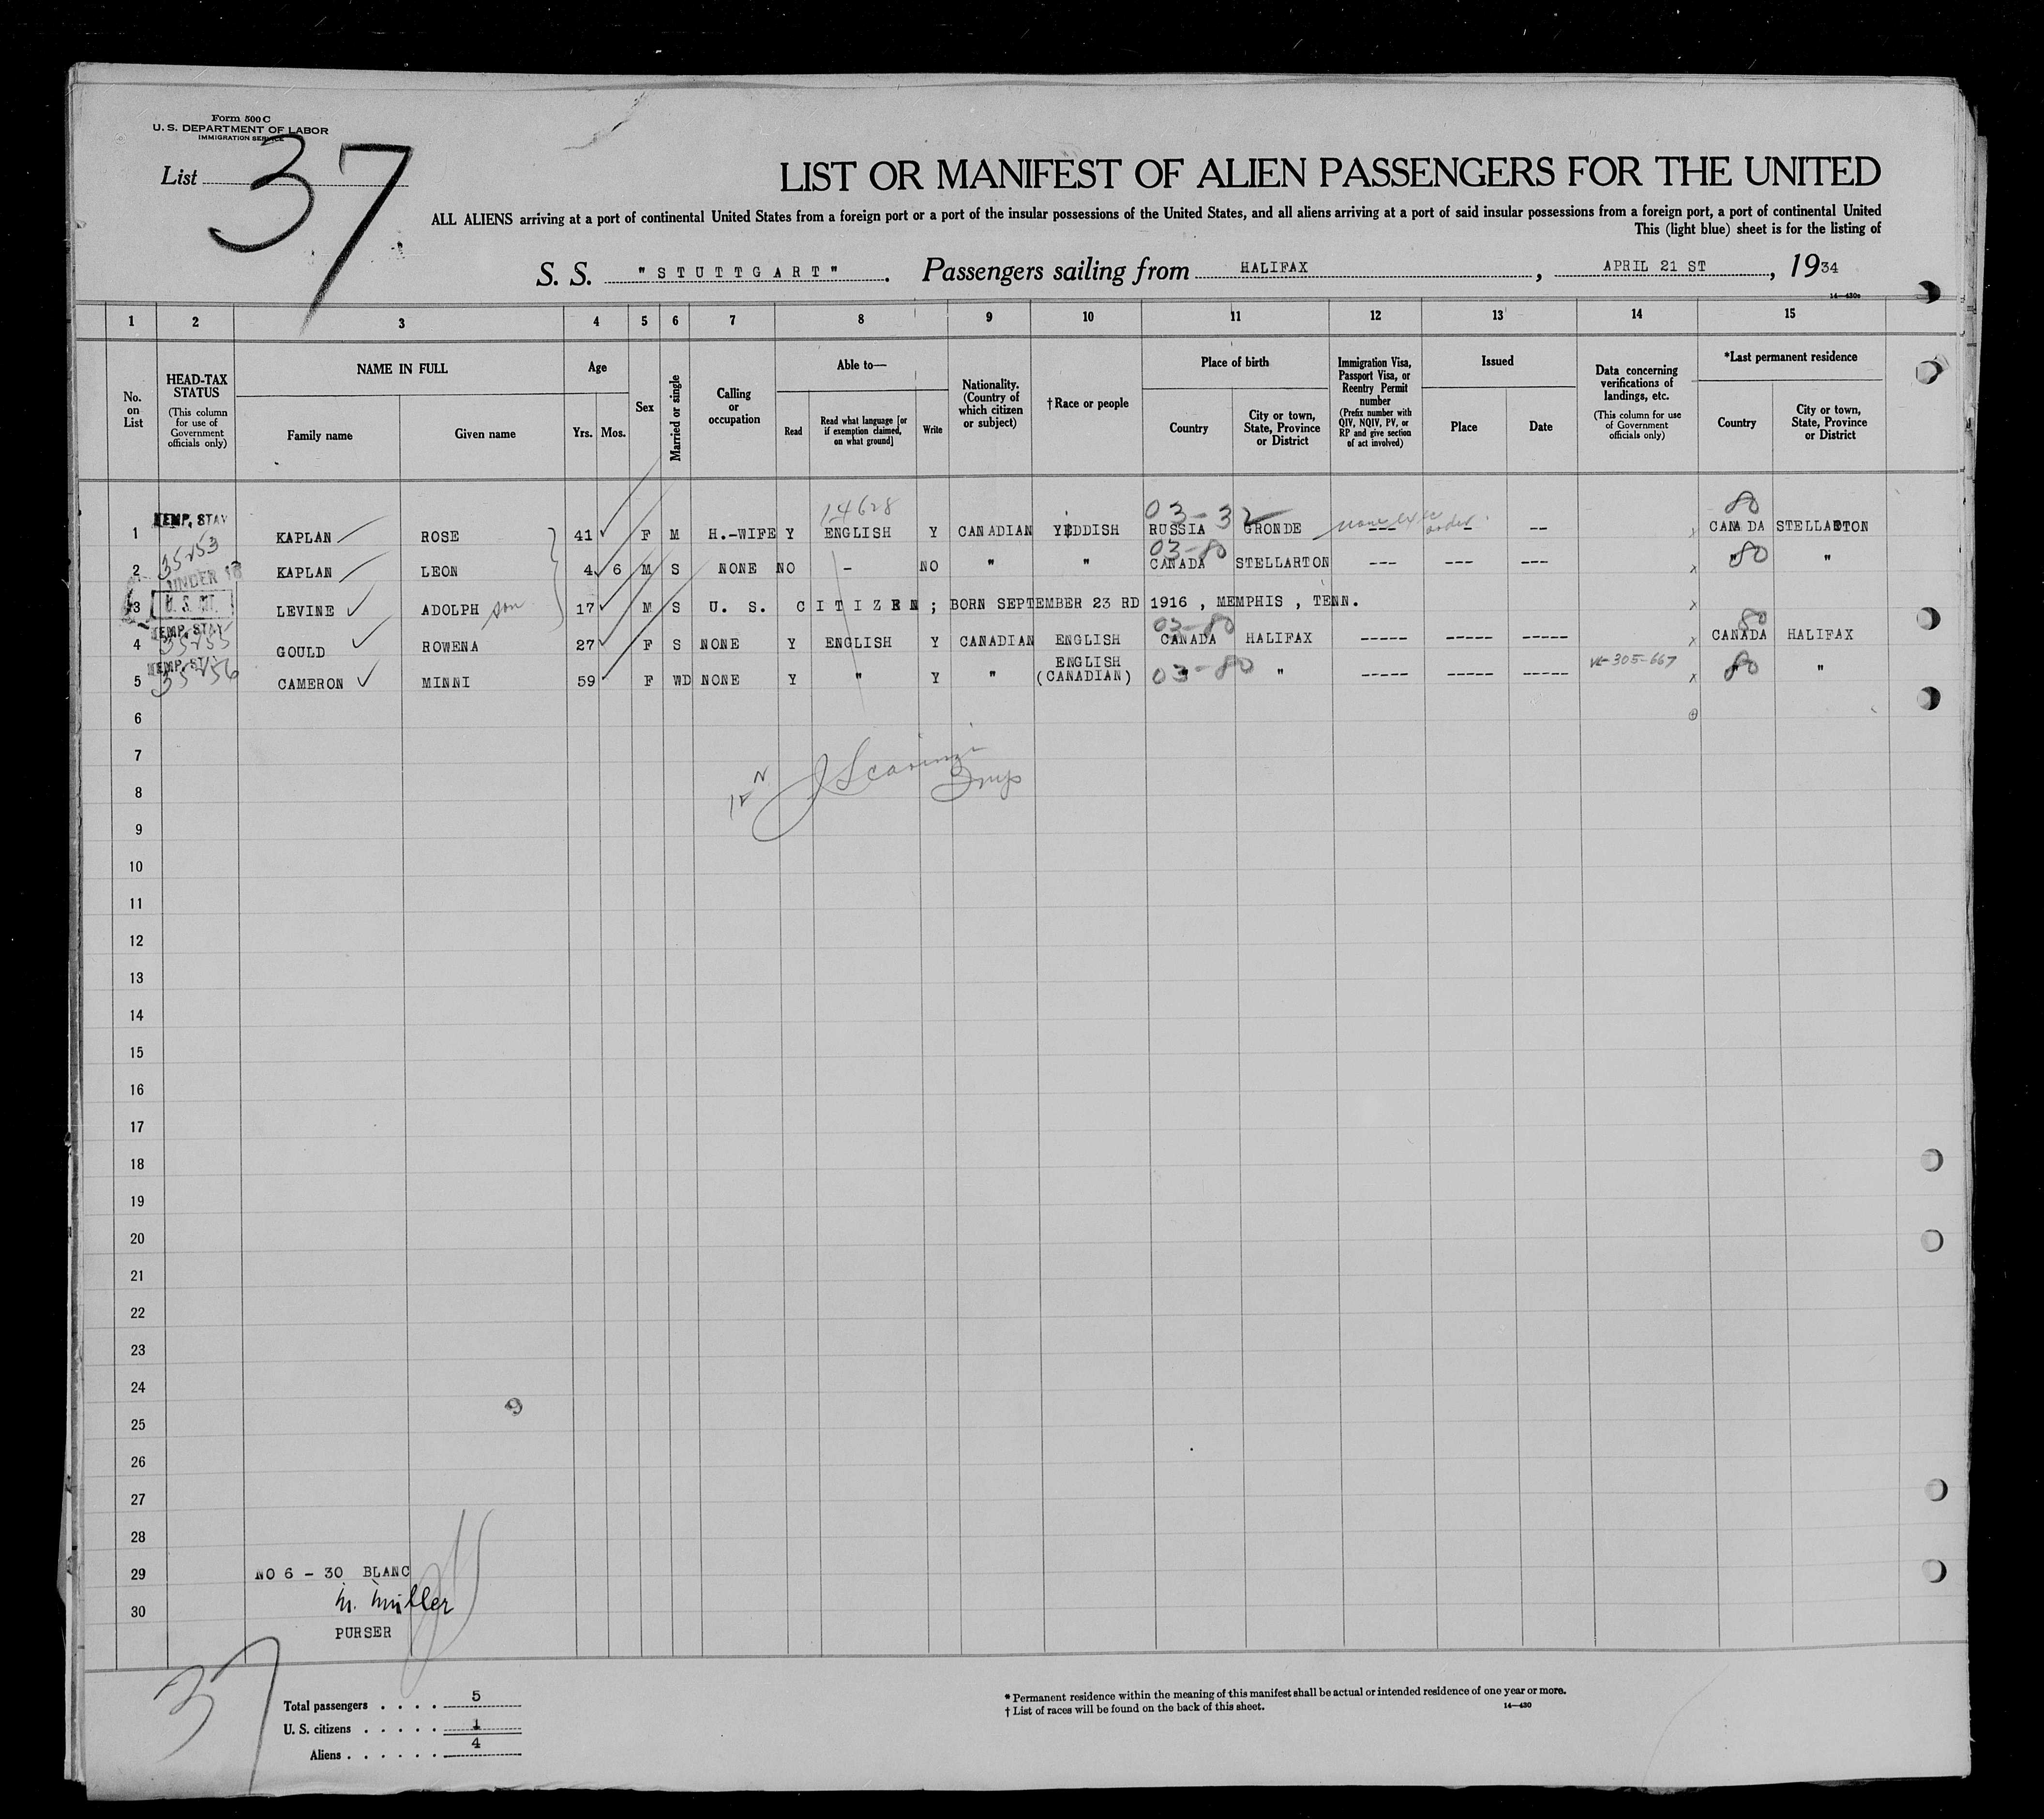 Form 500 C
U. S. DEPARTMENT OF LABOR
IMMIGRATION SERVICE
List 37
LIST OR MANIFEST OF ALIEN PASSENGERS FOR THE UNITED
ALL ALIENS arriving at a port of continental United States from a foreign port or a port of the insular possessions of the United States, and all aliens arriving at a port of said insular possessions from a foreign port, a port of continental United
This (light blue) sheet is for the listing of
S. S. "STUTTGART". Passengers sailing from HALIFAX, APRIL 21 ST, 1934
14—430a
1 2 3 4 5 6 7 8 9 10 11 12 13 14 15
No. on List
HEAD-TAX STATUS (This column for use of Government officials only)
NAME IN FULL
Family name Given name
Age
Yrs. Mos.
Sex
Married or single
Calling or occupation
Able to—
Read Read what language [or if exemption claimed, on what ground] Write
Nationality. (Country of which citizen or subject)
† Race or people
Place of birth
Country City or town, State, Province or District
Immigration Visa, Passport Visa, or Reentry Permit number (Prefix number with QIV, NQIV, PV, or RP and give section of act involved)
Issued
Place Date
Data concerning verifications of landings, etc. (This column for use of Government officials only)
*Last permanent residence
Country City or town, State, Province or District
14628 03-32 80
1 TEMP. STAY KAPLAN ROSE 41 F M H.-WIFE Y ENGLISH Y CANADIAN YIDDISH RUSSIA GRONDE --- - -- CANADA STELLARTON
03-80 80
2 UNDER 16 KAPLAN LEON 4 6 M S NONE NO - NO " " CANADA STELLARTON --- --- --- " "
3 LEVINE ADOLPH son 17 M S U. S. CITIZEN ; BORN SEPTEMBER 23 RD 1916 , MEMPHIS , TENN.
03-80 80
4 TEMP. STAY GOULD ROWENA 27 F S NONE Y ENGLISH Y CANADIAN ENGLISH CANADA HALIFAX ----- ----- ----- CANADA HALIFAX
5 CAMERON MINNI 59 F WD NONE Y " Y " ENGLISH (CANADIAN) 03-80 " " ----- ----- ----- 305-667 80 " "
6
7
8
9
10
11
12
13
14
15
16
17
18
19
20
21
22
23
24
25
26
27
28
29 NO 6 - 30 BLANC
30 M. Müller
PURSER
37
Total passengers . . . . 5
U. S. citizens . . . . . 1
Aliens . . . . . . 4
* Permanent residence within the meaning of this manifest shall be actual or intended residence of one year or more.
† List of races will be found on the back of this sheet.
14—430